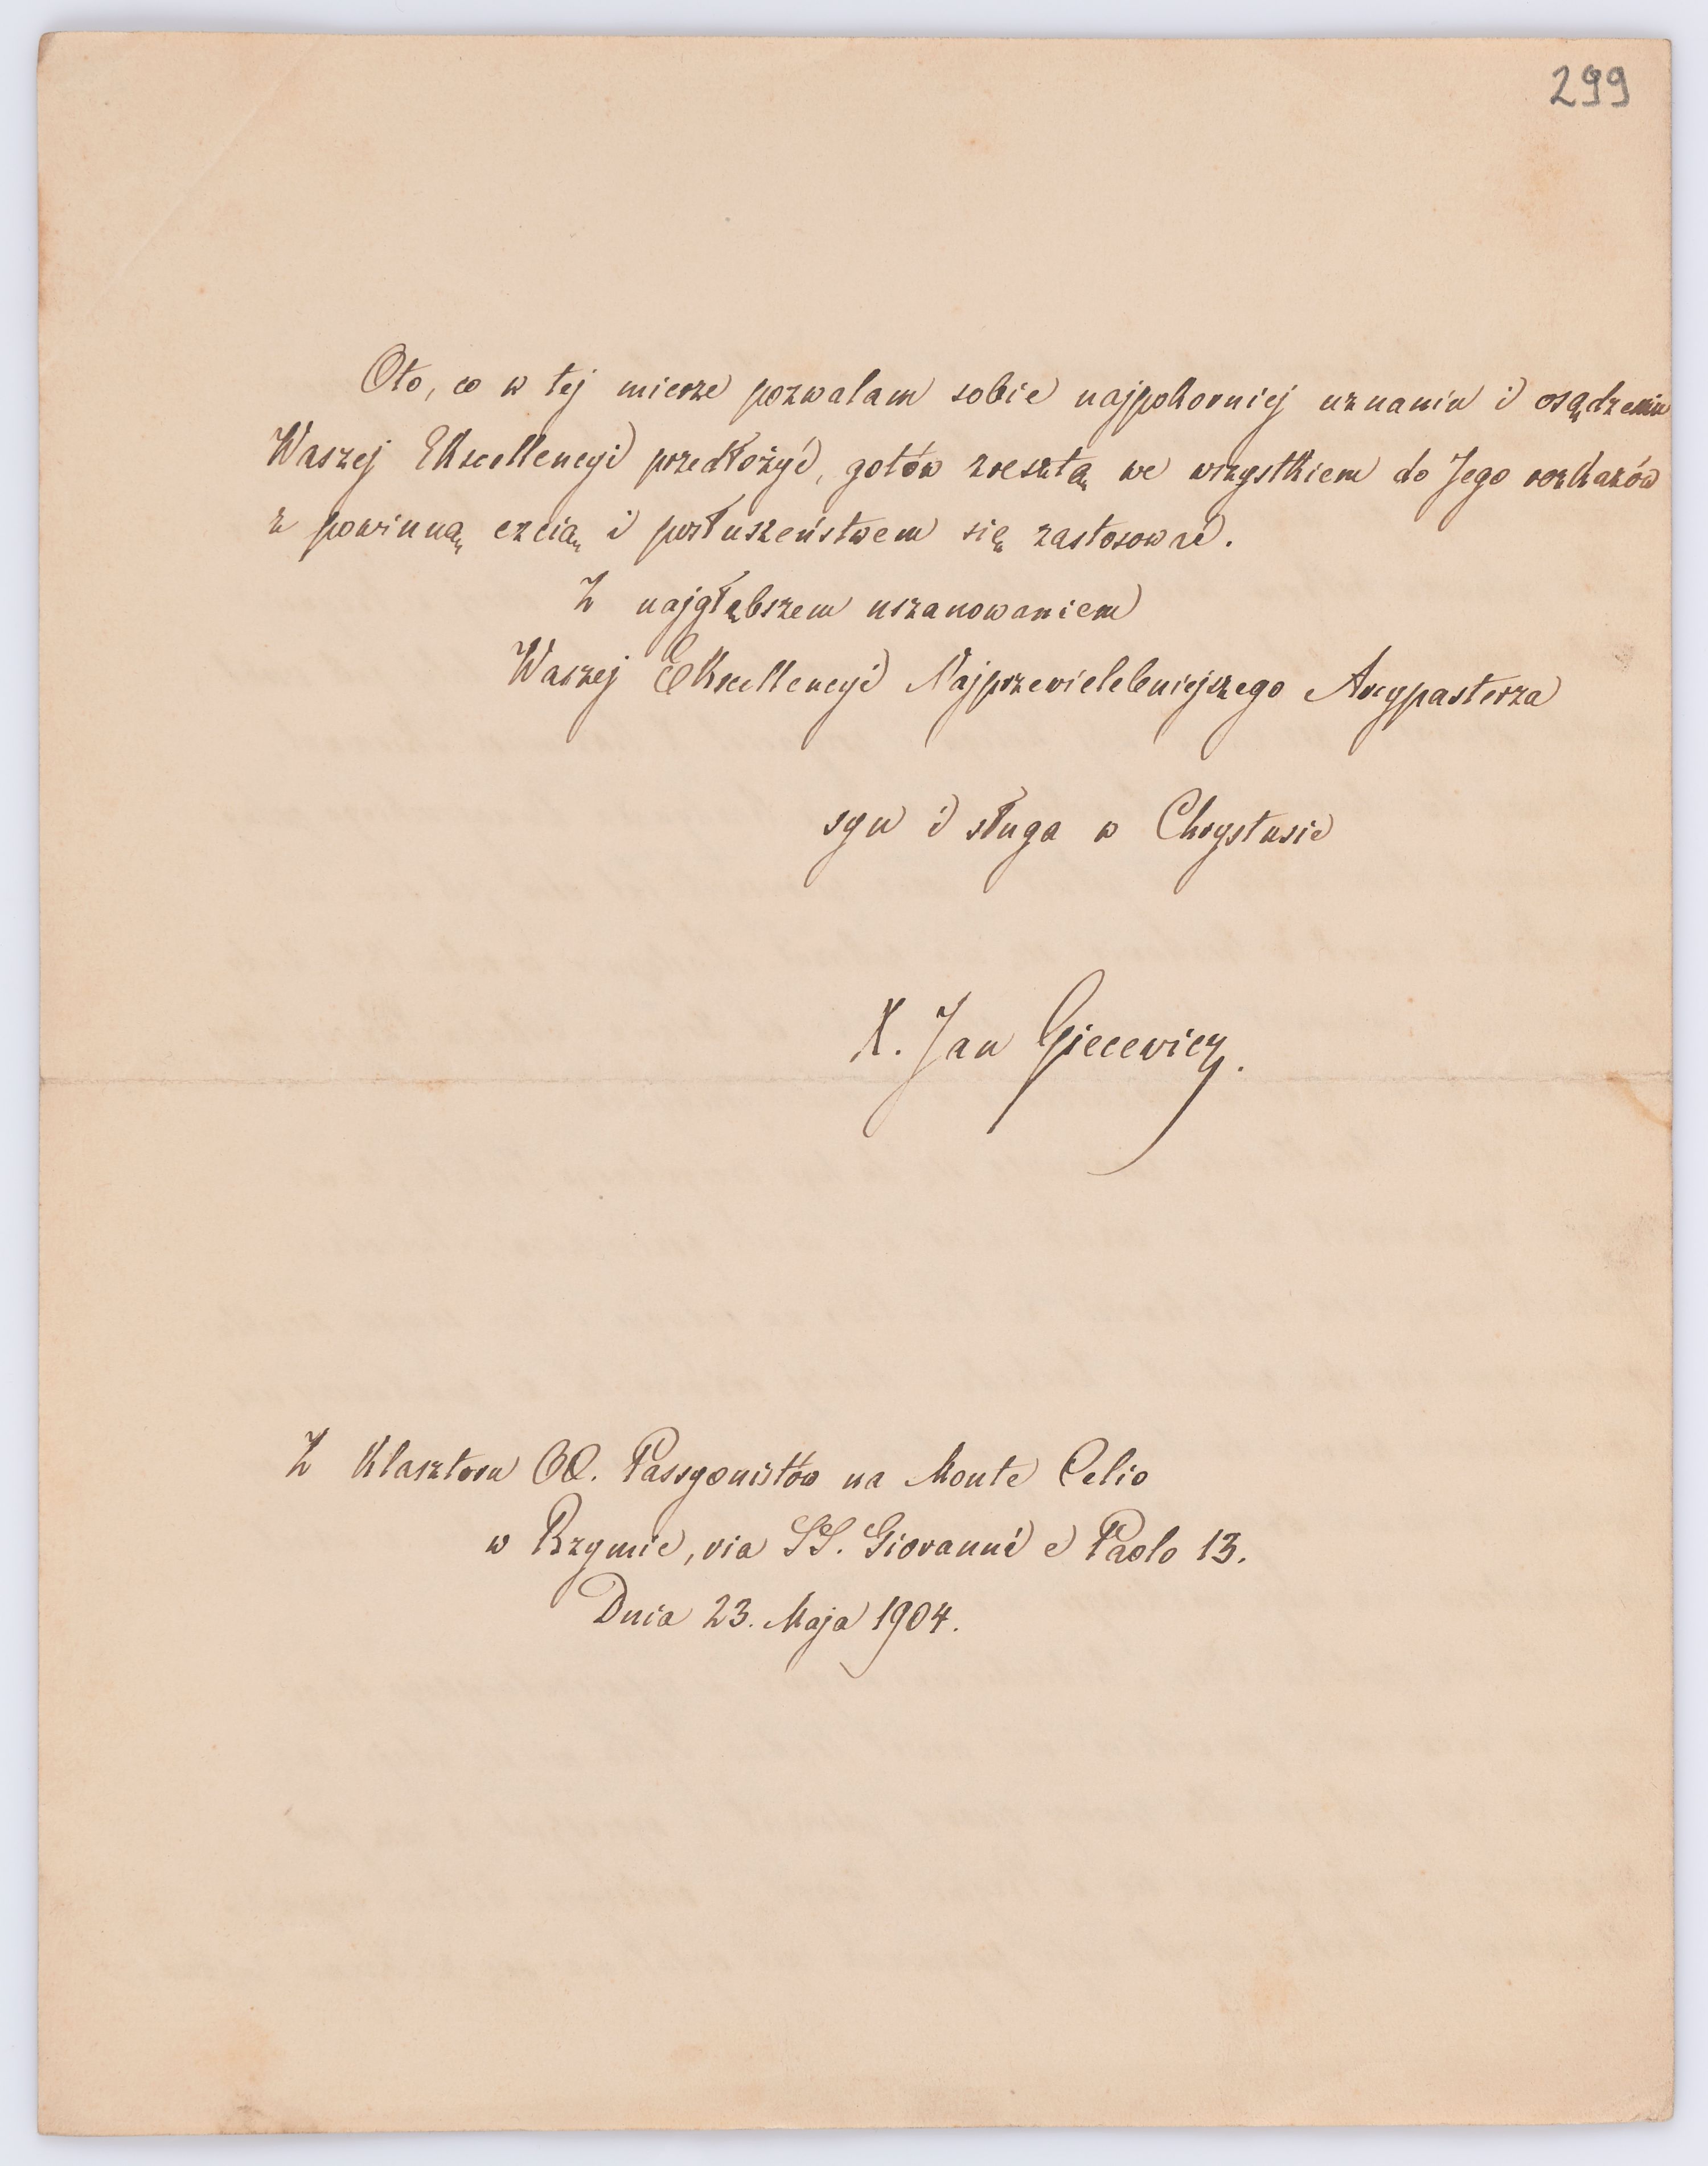 299
Oto, co w tej mierze pozwalam sobie najpokorniej uznaniu i osądzeniu
Waszej Ekscellencyi przedłożyć, gotów zresztą we wszystkiem do Jego rozkazów
z powinną czcią i posłuszeństwem się zastosować.
Z najgłębszem uszanowaniem
Waszej Ekscellencyi Najprzewielebniejszego Arcypasterza
syn i sługa w Chrystusie
X. Jan Giecewicz.
Z Klasztoru OO. Passyonistów na Monte Celio
w Rzymie, via SS. Giovanni e Paolo 13.
Dnia 23. Maja 1904.